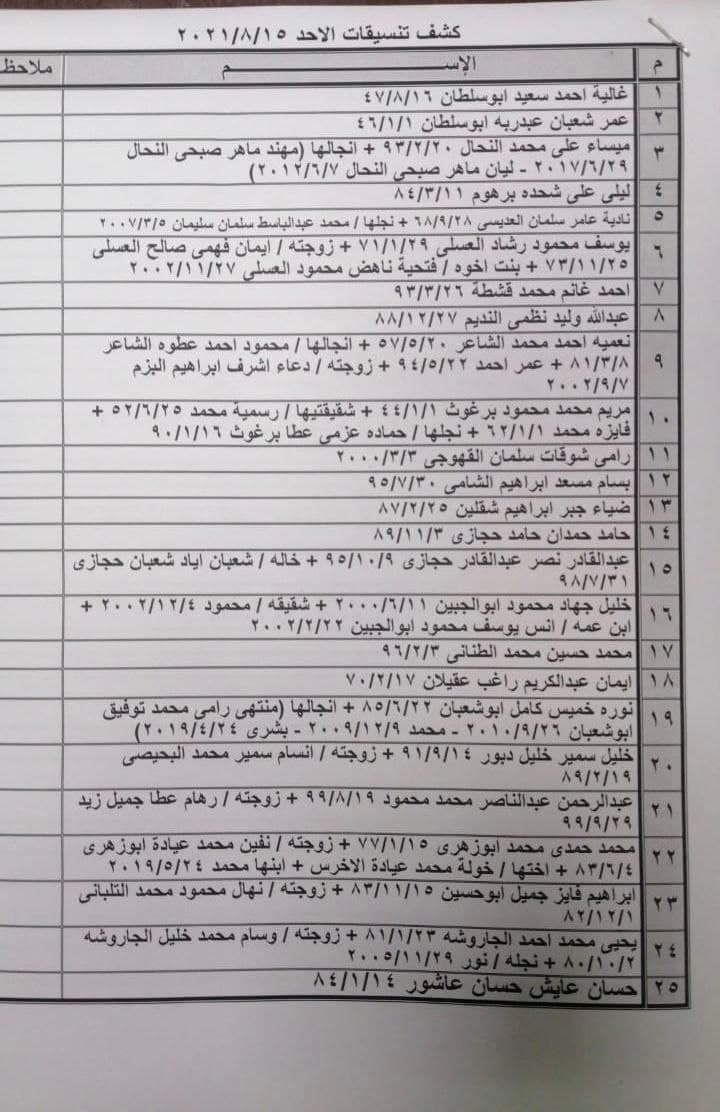 كشف تنسيقات الاحد ٢٠٢١/٨/١٥
م الإســــــم ملاحظ
١ غالية احمد سعيد ابوسلطان ٤٧/٨/١٦
٢ عمر شعبان عبدربه ابوسلطان ٤٦/١/١
٣ ميساء على محمد النحال ٩٣/٢/٢٠ + انجالها (مهند ماهر صبحى النحال
٢٠١٧/٦/٢٩ - ليان ماهر صبحى النحال ٢٠١٢/٦/٧)
٤ ليلى على شحده برهوم ٨٤/٣/١١
٥ نادية عامر سلمان العديسى ٦٨/٩/٢٨ + نجلها / محمد عبدالباسط سلمان سليمان ٢٠٠٧/٣/٥
٦ يوسف محمود رشاد العسلى ٧١/١/٢٩ + زوجته / ايمان فهمى صالح العسلى
٧٣/١١/٢٥ + بنت اخوه / فتحية ناهض محمود العسلى ٢٠٠٢/١١/٢٧
٧ احمد غانم محمد قشطة ٩٣/٣/٢٦
٨ عبدالله وليد نظمى النديم ٨٨/١٢/٢٧
٩ نعميه احمد محمد الشاعر ٥٧/٥/٢٠ + انجالها / محمود احمد عطوه الشاعر
٨١/٣/٨ + عمر احمد ٩٤/٥/٢٢ + زوجته / دعاء اشرف ابراهيم البزم
٢٠٠٢/٩/٧
١٠ مريم محمد محمود برغوث ٤٤/١/١ + شقيقتيها / رسمية محمد ٥٢/٦/٢٥ +
فايزه محمد ٦٢/١/١ + نجلها / حماده عزمى عطا برغوث ٩٠/١/١٦
١١ رامى شوقات سلمان القهوجى ٢٠٠٠/٣/٣
١٢ بسام مسعد ابراهيم الشامى ٩٥/٧/٣٠
١٣ ضياء جبر ابراهيم شقلين ٨٧/٢/٢٥
١٤ حامد حمدان حامد حجازى ٨٩/١١/٣
١٥ عبدالقادر نصر عبدالقادر حجازى ٩٥/١٠/٩ + خاله / شعبان اياد شعبان حجازى
٩٨/٧/٣١
١٦ خليل جهاد محمود ابوالجبين ٢٠٠٠/٦/١١ + شقيقه / محمود ٢٠٠٢/١٢/٤ +
ابن عمه / انس يوسف محمود ابوالجبين ٢٠٠٢/٢/٢٢
١٧ محمد حسين محمد الطنانى ٩٦/٢/٣
١٨ ايمان عبدالكريم راغب عقيلان ٧٠/٢/١٧
١٩ نوره خميس كامل ابوشعبان ٨٥/٦/٢٢ + انجالها (منتهى رامى محمد توفيق
ابوشعبان ٢٠١٠/٩/٢٦ - محمد ٢٠٠٩/١٢/٩ - بشرى ٢٠١٩/٤/٢٤)
٢٠ خليل سمير خليل دبور ٩١/٩/١٤ + زوجته / انسام سمير محمد البحيصى
٨٩/٢/١٩
٢١ عبدالرحمن عبدالناصر محمد محمود ٩٩/٨/١٩ + زوجته / رهام عطا جميل زيد
٩٩/٩/٢٩
٢٢ محمد حمدى محمد ابوزهرى ٧٧/١/١٥ + زوجته / نفين محمد عيادة ابوزهرى
٨٣/٦/٤ + اختها / خولة محمد عيادة الاخرس + ابنها محمد ٢٠١٩/٥/٢٤
٢٣ ابراهيم فايز جميل ابوحسين ٨٣/١١/١٥ + زوجته / نهال محمود محمد التلبانى
٨٢/١٢/١
٢٤ يحيى محمد احمد الجاروشه ٨١/١/٢٣ + زوجته / وسام محمد خليل الجاروشه
٨٠/١٠/٢ + نجله / نور ٢٠٠٥/١١/٢٩
٢٥ حسان عايش حسان عاشور ٨٤/١/١٤